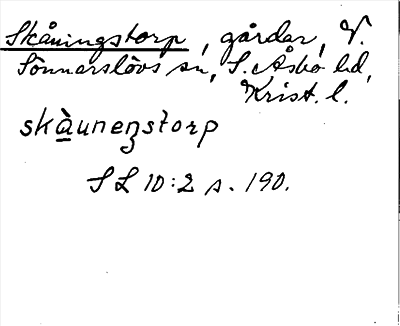 Skåningstorp, gårdar, V.
Sönnarslövs sn, S. Åsbo hd,
Krist. l.
skàunenstorp
S L 10:2 s. 190.